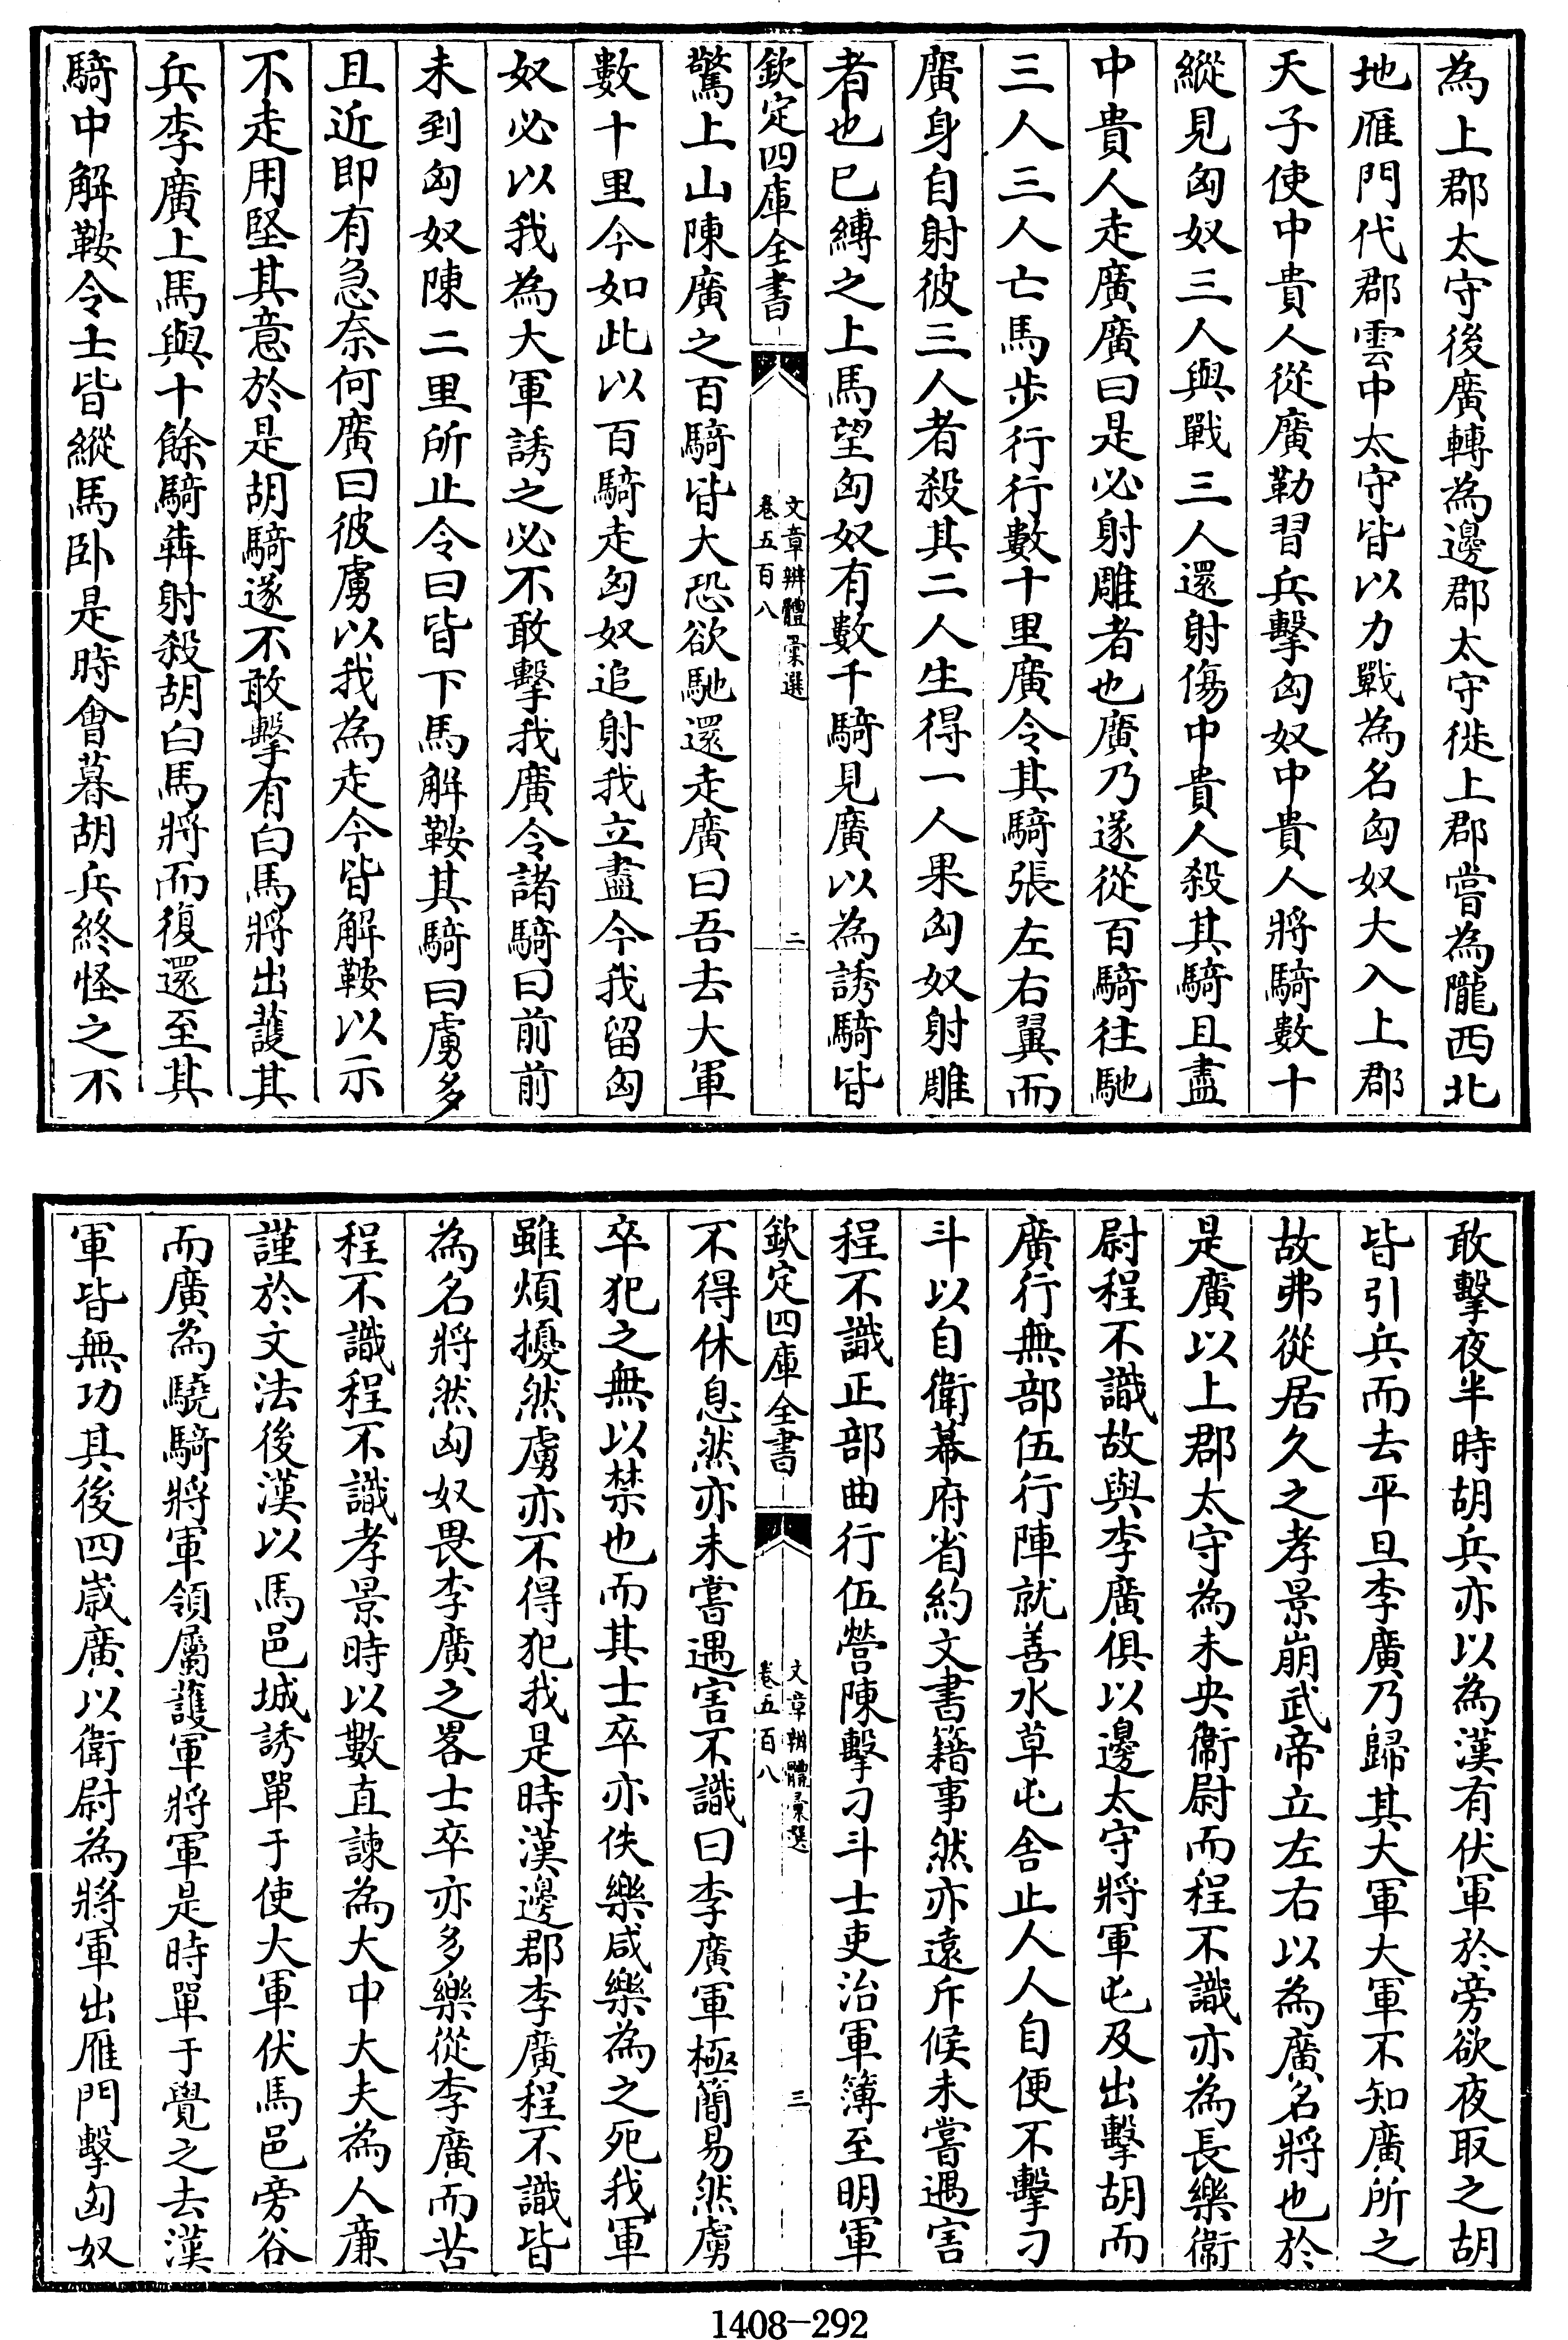 為上郡太守後廣轉為邊郡太守徙上郡嘗為隴西北
地雁門代郡雲中太守皆以力戰為名匈奴大入上郡
天子使中貴人從廣勒習兵擊匈奴中貴人將騎數十
縱見匈奴三人與戰三人還射傷中貴人殺其騎且盡
中貴人走廣廣曰是必射雕者也廣乃遂從百騎往馳
三人三人亡馬步行行數十里廣令其騎張左右翼而
廣身自射彼三人者殺其二人生得一人果匈奴射雕
者也已縛之上馬望匈奴有數千騎見廣以為誘騎皆
欽定四庫全書
文章辨體彙選
卷五百八
二
驚上山陳廣之百騎皆大恐欲馳還走廣曰吾去大軍
數十里今如此以百騎走匈奴追射我立盡今我留匈
奴必以我為大軍誘之必不敢擊我廣令諸騎曰前前
未到匈奴陳二里所止令曰皆下馬解鞍其騎曰虜多
且近即有急奈何廣曰彼虜以我為走今皆解鞍以示
不走用堅其意於是胡騎遂不敢擊有白馬將出護其
兵李廣上馬與十餘騎犇射殺胡白馬將而復還至其
騎中解鞍令士皆縱馬卧是時會暮胡兵終怪之不
敢擊夜半時胡兵亦以為漢有伏軍於旁欲夜取之胡
皆引兵而去平旦李廣乃歸其大軍大軍不知廣所之
故弗從居久之孝景崩武帝立左右以為廣名將也於
是廣以上郡太守為未央衞尉而程不識亦為長樂衞
尉程不識故與李廣俱以邊太守將軍屯及出擊胡而
廣行無部伍行陣就善水草屯舍止人人自便不擊刁
斗以自衛幕府省約文書籍事然亦遠斥候未嘗遇害
程不識正部曲行伍營陳擊刁斗士吏治軍簿至明軍
欽定四庫全書
文章辨體彙選
卷五百八
三
不得休息然亦未嘗遇害不識曰李廣軍極簡易然虜
卒犯之無以禁也而其士卒亦佚樂咸樂為之死我軍
雖煩擾然虜亦不得犯我是時漢邊郡李廣程不識皆
為名將然匈奴畏李廣之畧士卒亦多樂從李廣而苦
程不識程不識孝景時以數直諫為大中大夫為人亷
謹於文法後漢以馬邑城誘單于使大軍伏馬邑旁谷
而廣為驍騎將軍領屬護軍將軍是時單于覺之去漢
軍皆無功其後四嵗廣以衛尉為將軍出雁門擊匈奴
1408-292